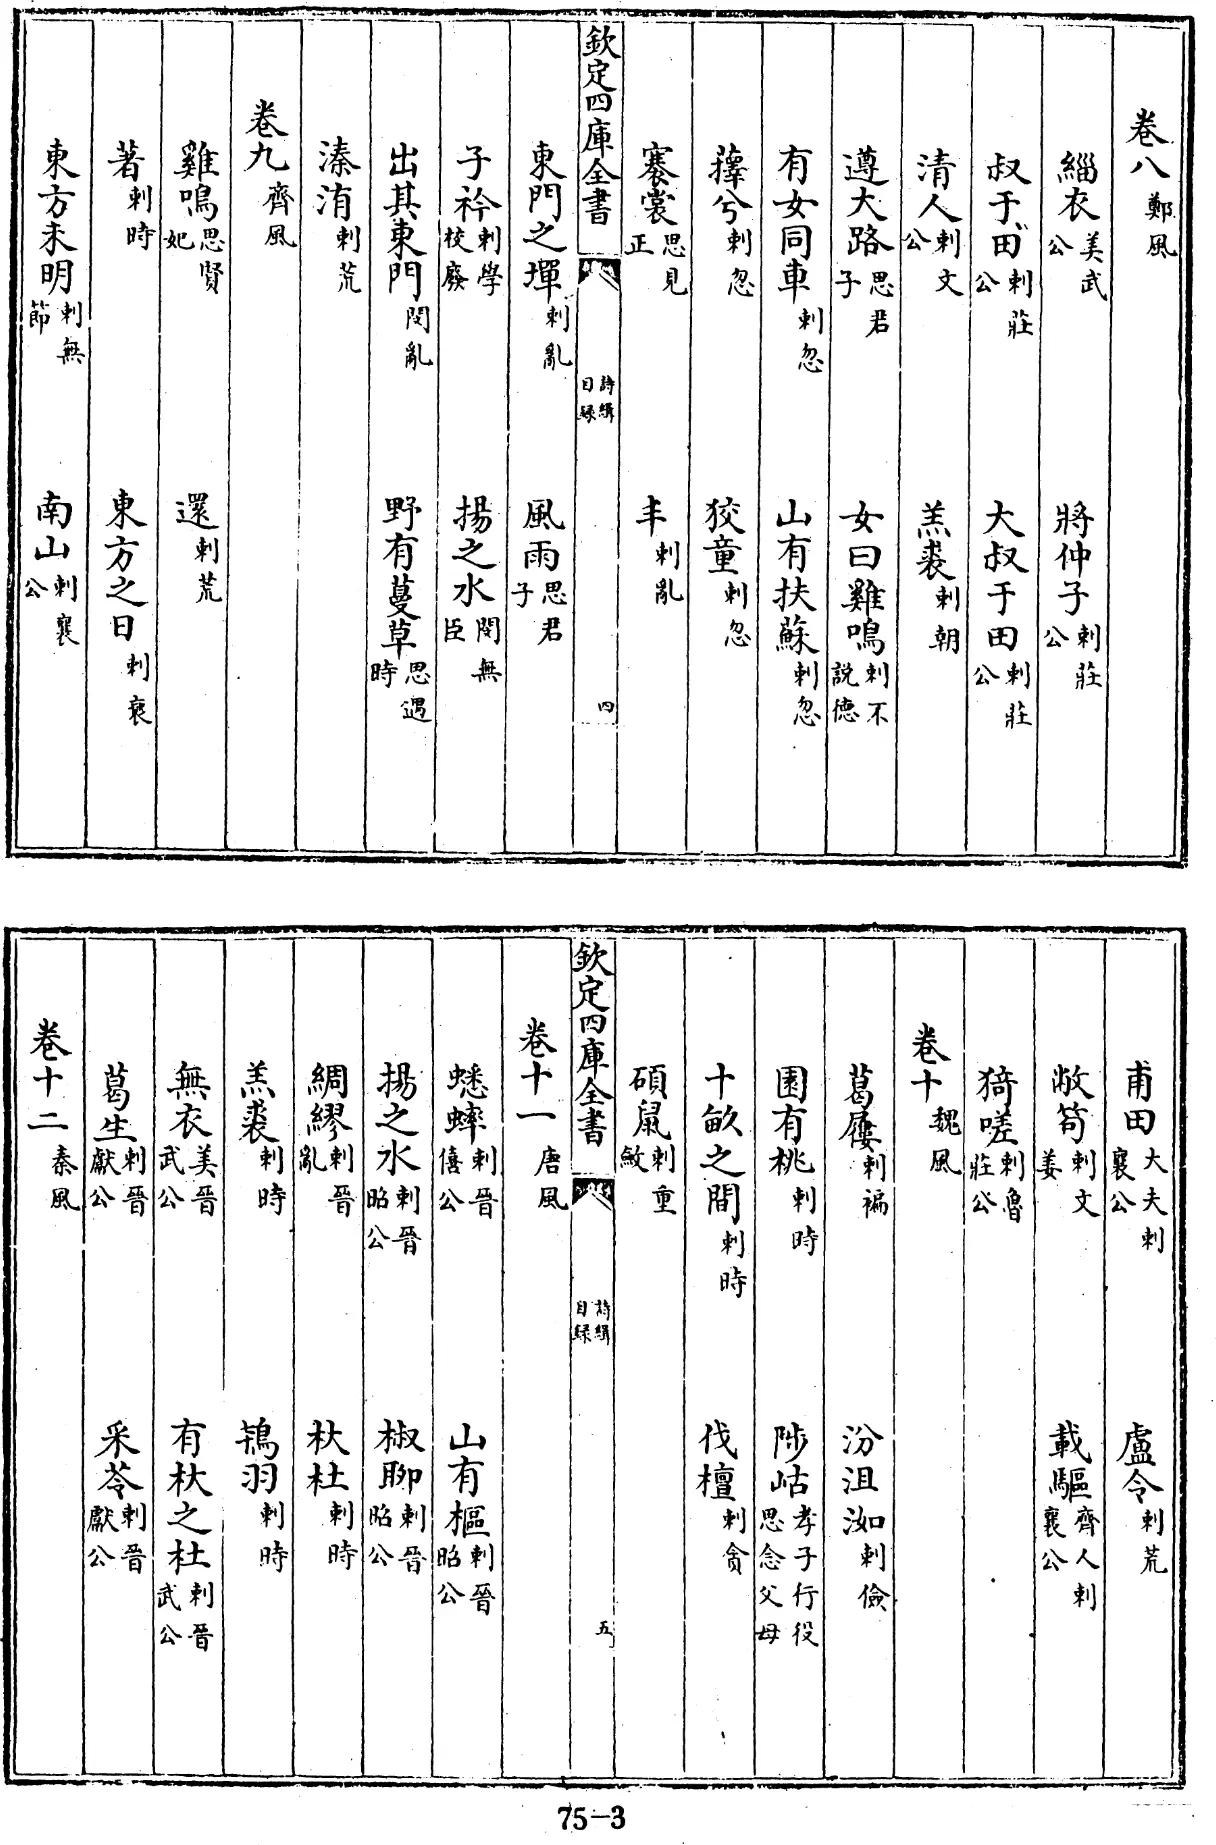 卷八 鄭風
緇衣 美武公 將仲子 刺莊公
叔于田 刺莊公 大叔于田 刺莊公
清人 刺文公 羔裘 刺朝
遵大路 思君子 女曰雞鳴 刺不說德
有女同車 刺忽 山有扶蘇 刺忽
蘀兮 刺忽 狡童 刺忽
褰裳 思見正 丰 刺亂
欽定四庫全書 詩緝目録 四
東門之墠 刺亂 風雨 思君子
子衿 刺學校廢 揚之水 閔無臣
出其東門 閔亂 野有蔓草 思遇時
溱洧 刺荒
卷九 齊風
雞鳴 思賢妃 還 刺荒
著 刺時 東方之日 刺衰
東方未明 刺無節 南山 刺襄公
甫田 大夫刺襄公 盧令 刺荒
敝笱 刺文姜 載驅 齊人刺襄公
猗嗟 刺魯莊公
卷十 魏風
葛屨 刺褊 汾沮洳 刺儉
園有桃 刺時 陟岵 孝子行役思念父母
十畝之間 刺時 伐檀 刺貪
碩鼠 刺重斂
欽定四庫全書 詩緝目録 五
卷十一 唐風
蟋蟀 刺晉僖公 山有樞 刺晉昭公
揚之水 刺晉昭公 椒聊 刺晉昭公
綢繆 刺晉亂 杕杜 刺時
羔裘 刺時 鴇羽 刺時
無衣 美晉武公 有杕之杜 刺晉武公
葛生 刺晉獻公 采苓 刺晉獻公
卷十二 秦風
75-3